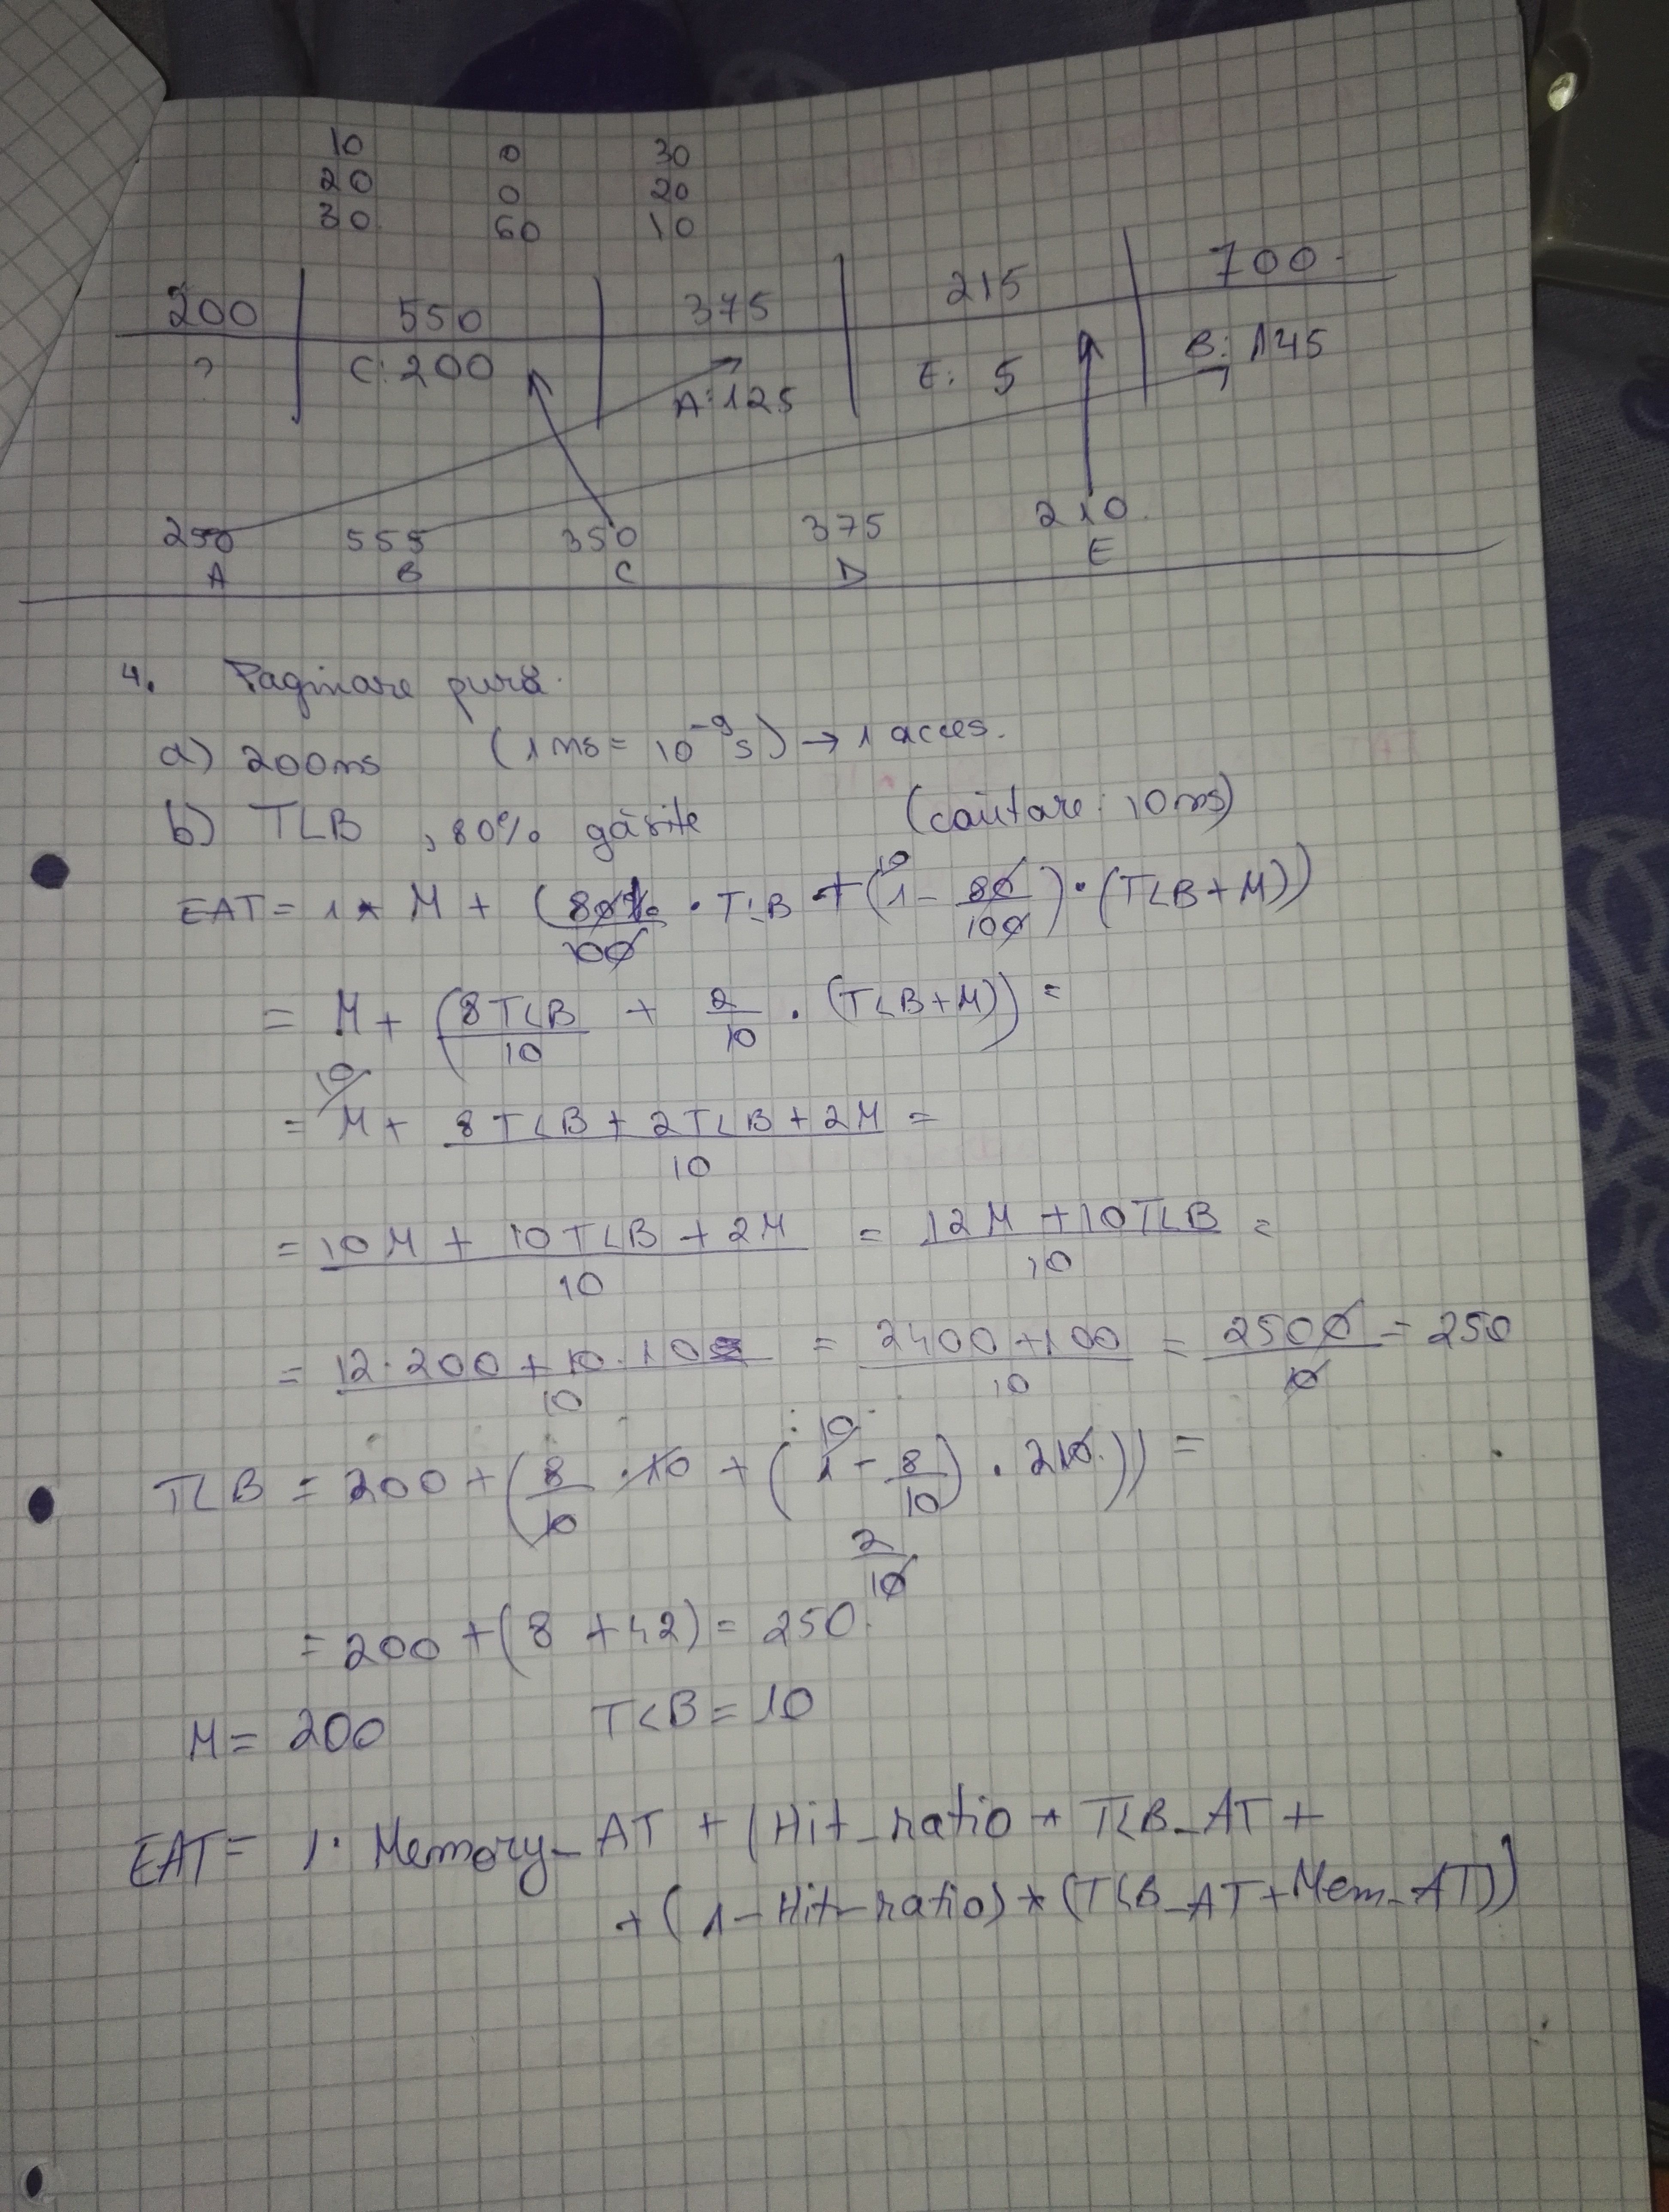 10 0 30
20 0 20
30 60 10
200 550 375 215 700
? C: 200 A: 125 E: 5 B: 145
250 555 350 375 210
A B C D E
4. Paginare pură
a) 200ns (1ns = 10⁻⁹s) → 1 acces.
b) TLB , 80% găsite (căutare: 10ns)
EAT = 1 * M + (80%/100 · TLB + (1 - 80/100) · (TLB + M))
= M + (8TLB/10 + 2/10 · (TLB + M)) =
= M + (8TLB + 2TLB + 2M)/10 =
= (10M + 10TLB + 2M)/10 = (12M + 10TLB)/10 =
= (12·200 + 10·10)/10 = (2400 + 100)/10 = 2500/10 = 250
TLB = 200 + (8/10 · 10 + (1 - 8/10) · 210)) =
2/10
= 200 + (8 + 42) = 250.
M = 200 TLB = 10
EAT = 1· Memory_AT + (Hit_ratio * TLB_AT +
+ (1 - Hit_ratio) * (TLB_AT + Mem_AT))